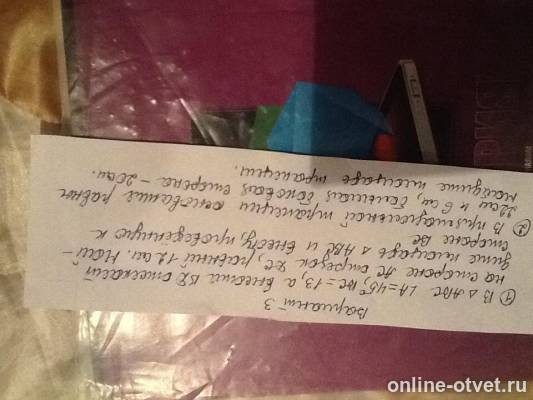 Вариант 3
① В △ АВС ∠А=45°, ВС=13, а высота ВД отсекает
на стороне АС отрезок ДС, равный 12 см. Най-
дите площадь △ АВС и высоту, проведённую к
стороне ВС
② В прямоугольной трапеции основания равны
22 см и 6 см, большая боковая сторона – 20 см.
Найдите площадь трапеции.
online-otvet.ru